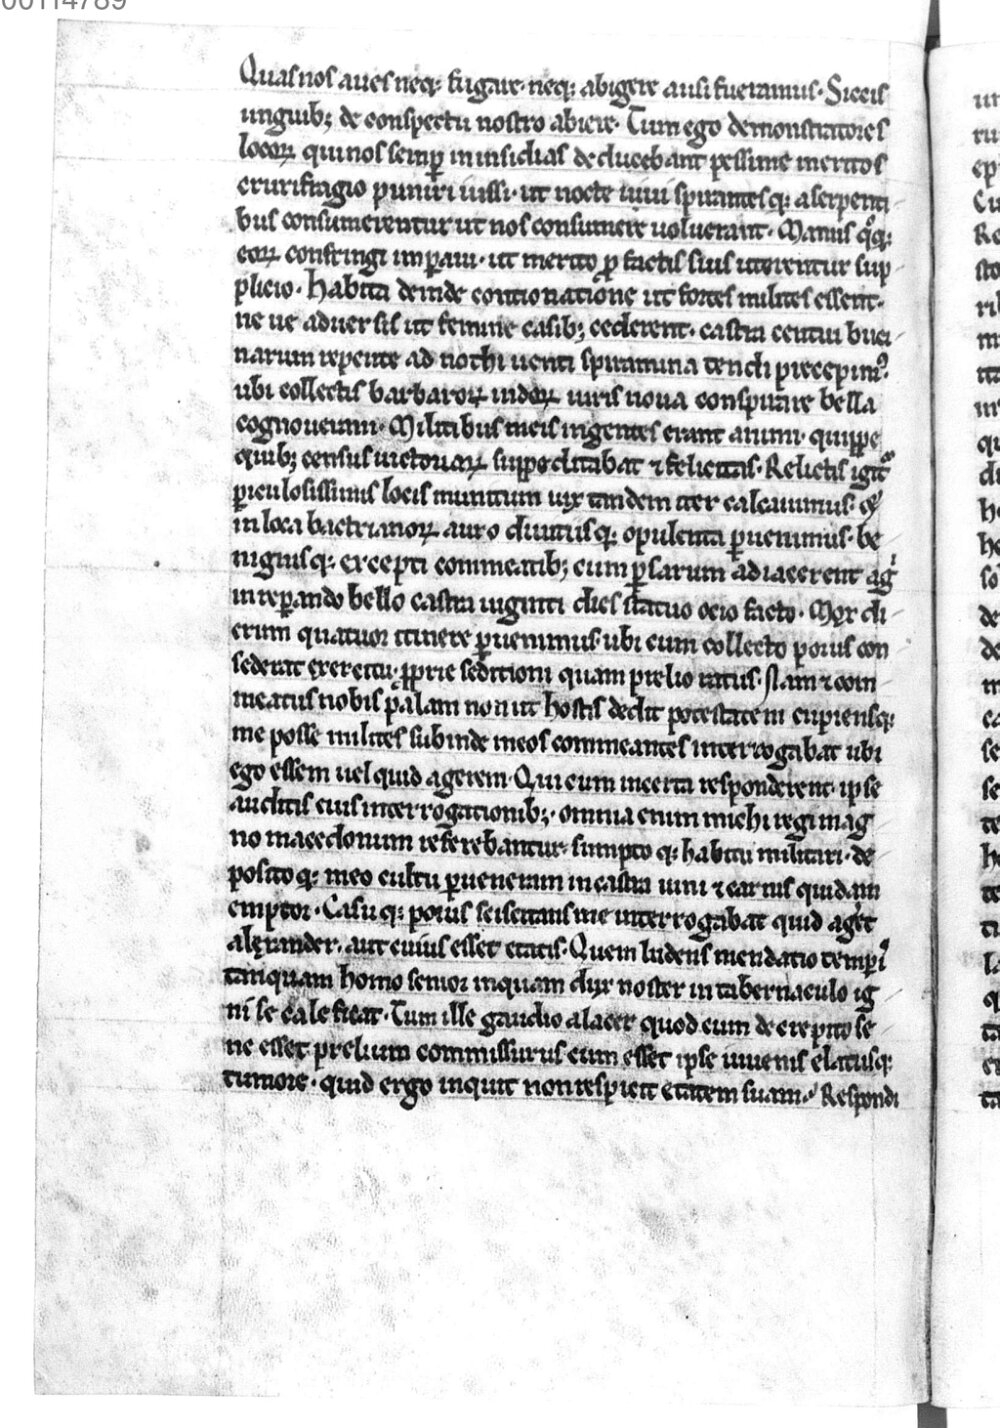 00114789
Quas nos aues neq; fugare neq; abigere ausi fueramus. Siccis
unguib; de conspectu nostro abiere. Tum ego demonstratores
locoꝝ qui nos semꝑ in insidias deducebant pessime meritos
crurifragio puniri iussi. ut nocte uiui spirantesq; a serpenti
bus consumerentur ut nos consumere uoluerant. Manus q°q;
eoꝝ confringi imꝑaui. ut merito ꝓ factis suis uterentur sup
plicio. Habita deinde contionatione ut fortes milites essent.
ne ue aduersis ut femine casib; cederent. castra centui buci
narum repente ad nothi uenti spiramina tendi precepim᷒.
ubi collectis barbaroꝝ indoꝝ uiris noua conspirare bella
cognoueram. Militibus meis ingentes erant animi. quippe
quib; census uictoriaꝝ suppeditabat ⁊ felicitas. Relictis igit᷑
ꝑiculosissimis locis munitum uix tandem iter calcauimus. &
in loca bactrianoꝝ auro diuitiisq; opulenta ꝑuenimus. be
nigniusq; excepti commeatib; cum ꝑsarum adiacerent agri
in reꝑando bello castra uiginti dies statuo ocio facto. Mox di
erum quatuor itinere ꝑuenimus. ubi cum collecto porus con
sederat exercitu. ꝓprie seditioni quam prelio ratus. Nam ⁊ com
meatus nobis palam non ut hostis dedit potestatem cupiensq;
me posse milites subinde meos commeantes interrogabat ubi
ego essem uel quid agerem. Qui cum incerta responderent. ipse
auditis eius interrogationib;. omnia enim michi regi mag
no macedonum referebantur. sumpto q; habitu militari. de
posito q; meo cultu ꝑueneram in castra uini ⁊ carnis quidam
emptor. Casu q; porus sciscitans me interrogabat quid ageret
alexander. aut cuius esset etatis. Quem ludens mendatio tempori
tanquam homo senior inquam dux noster in tabernaculo ig
ni se calefacit. Tum ille gaudio alacer quod cum decrepito se
ne esset prelium commissurus cum esset ipse iuuenis elatusq;
tumore. quid ergo inquit non respicit etatem suam. Respondi